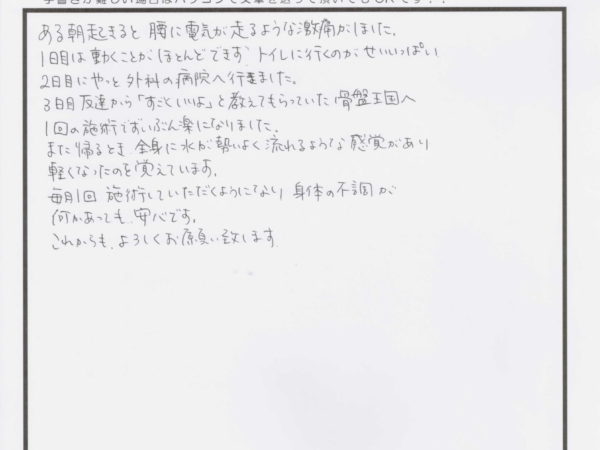 手書きが難しい場合はパソコンで文章を送って頂いてもOKです!!
ある朝起きると 腰に電気が走るような激痛がしました。
1日目は動くことがほとんどできず トイレに行くのがせいいっぱい
2日目にやっと外科の病院へ行きました。
3日目 友達から「すごくいいよ」と教えてもらっていた 骨盤王国へ
1回の施術でずいぶん楽になりました。
また帰るとき 全身に水が勢いよく流れるような感覚があり
軽くなったのを覚えています。
毎月1回 施術していただくようになり 身体の不調が
何かあっても 安心です。
これからも、よろしくお願い致します